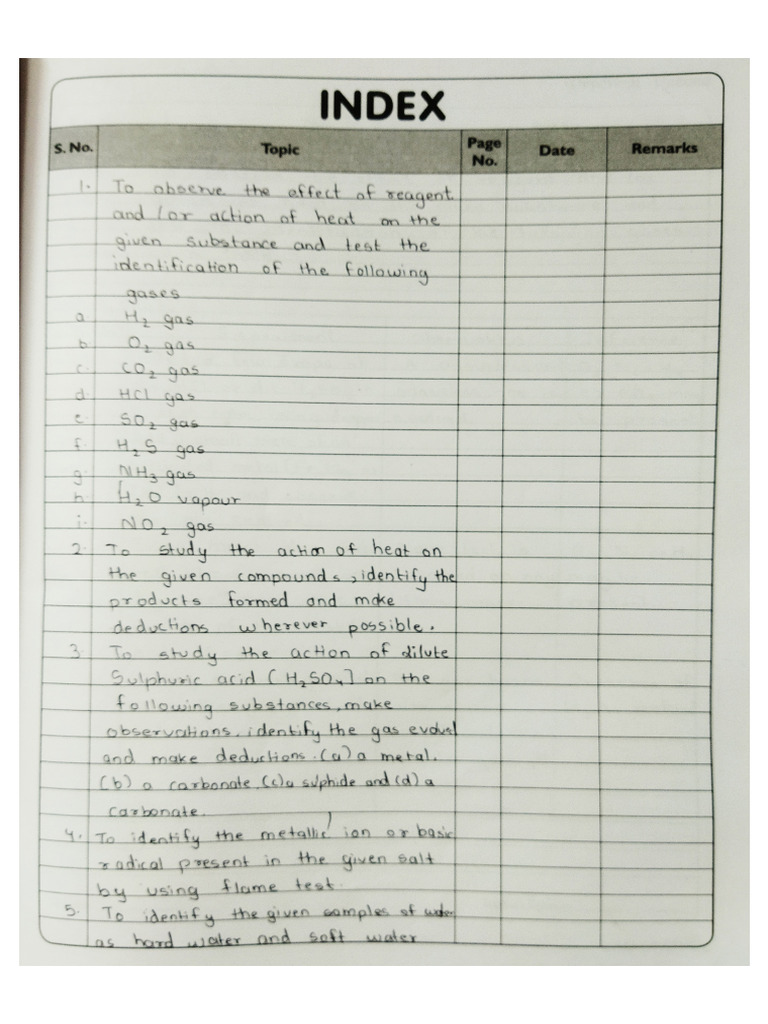 INDEX
S. No. Topic Page No. Date Remarks
1. To observe the effect of reagent
and /or action of heat on the
given substance and test the
identification of the following
gases
a H₂ gas
b O₂ gas
c. CO₂ gas
d. HCl gas
e SO₂ gas
f. H₂S gas
g. NH₃ gas
h H₂O vapour
i. NO₂ gas
2. To study the action of heat on
the given compounds, identify the
products formed and make
deductions wherever possible.
3. To study the action of dilute
Sulphuric acid [H₂SO₄] on the
following substances, make
observations, identify the gas evolved
and make deductions. (a) a metal.
(b) a carbonate, (c) a sulphide and (d) a
carbonate.
4. To identify the metallic ion or basic
radical present in the given salt
by using flame test.
5. To identify the given samples of water
as hard water and soft water